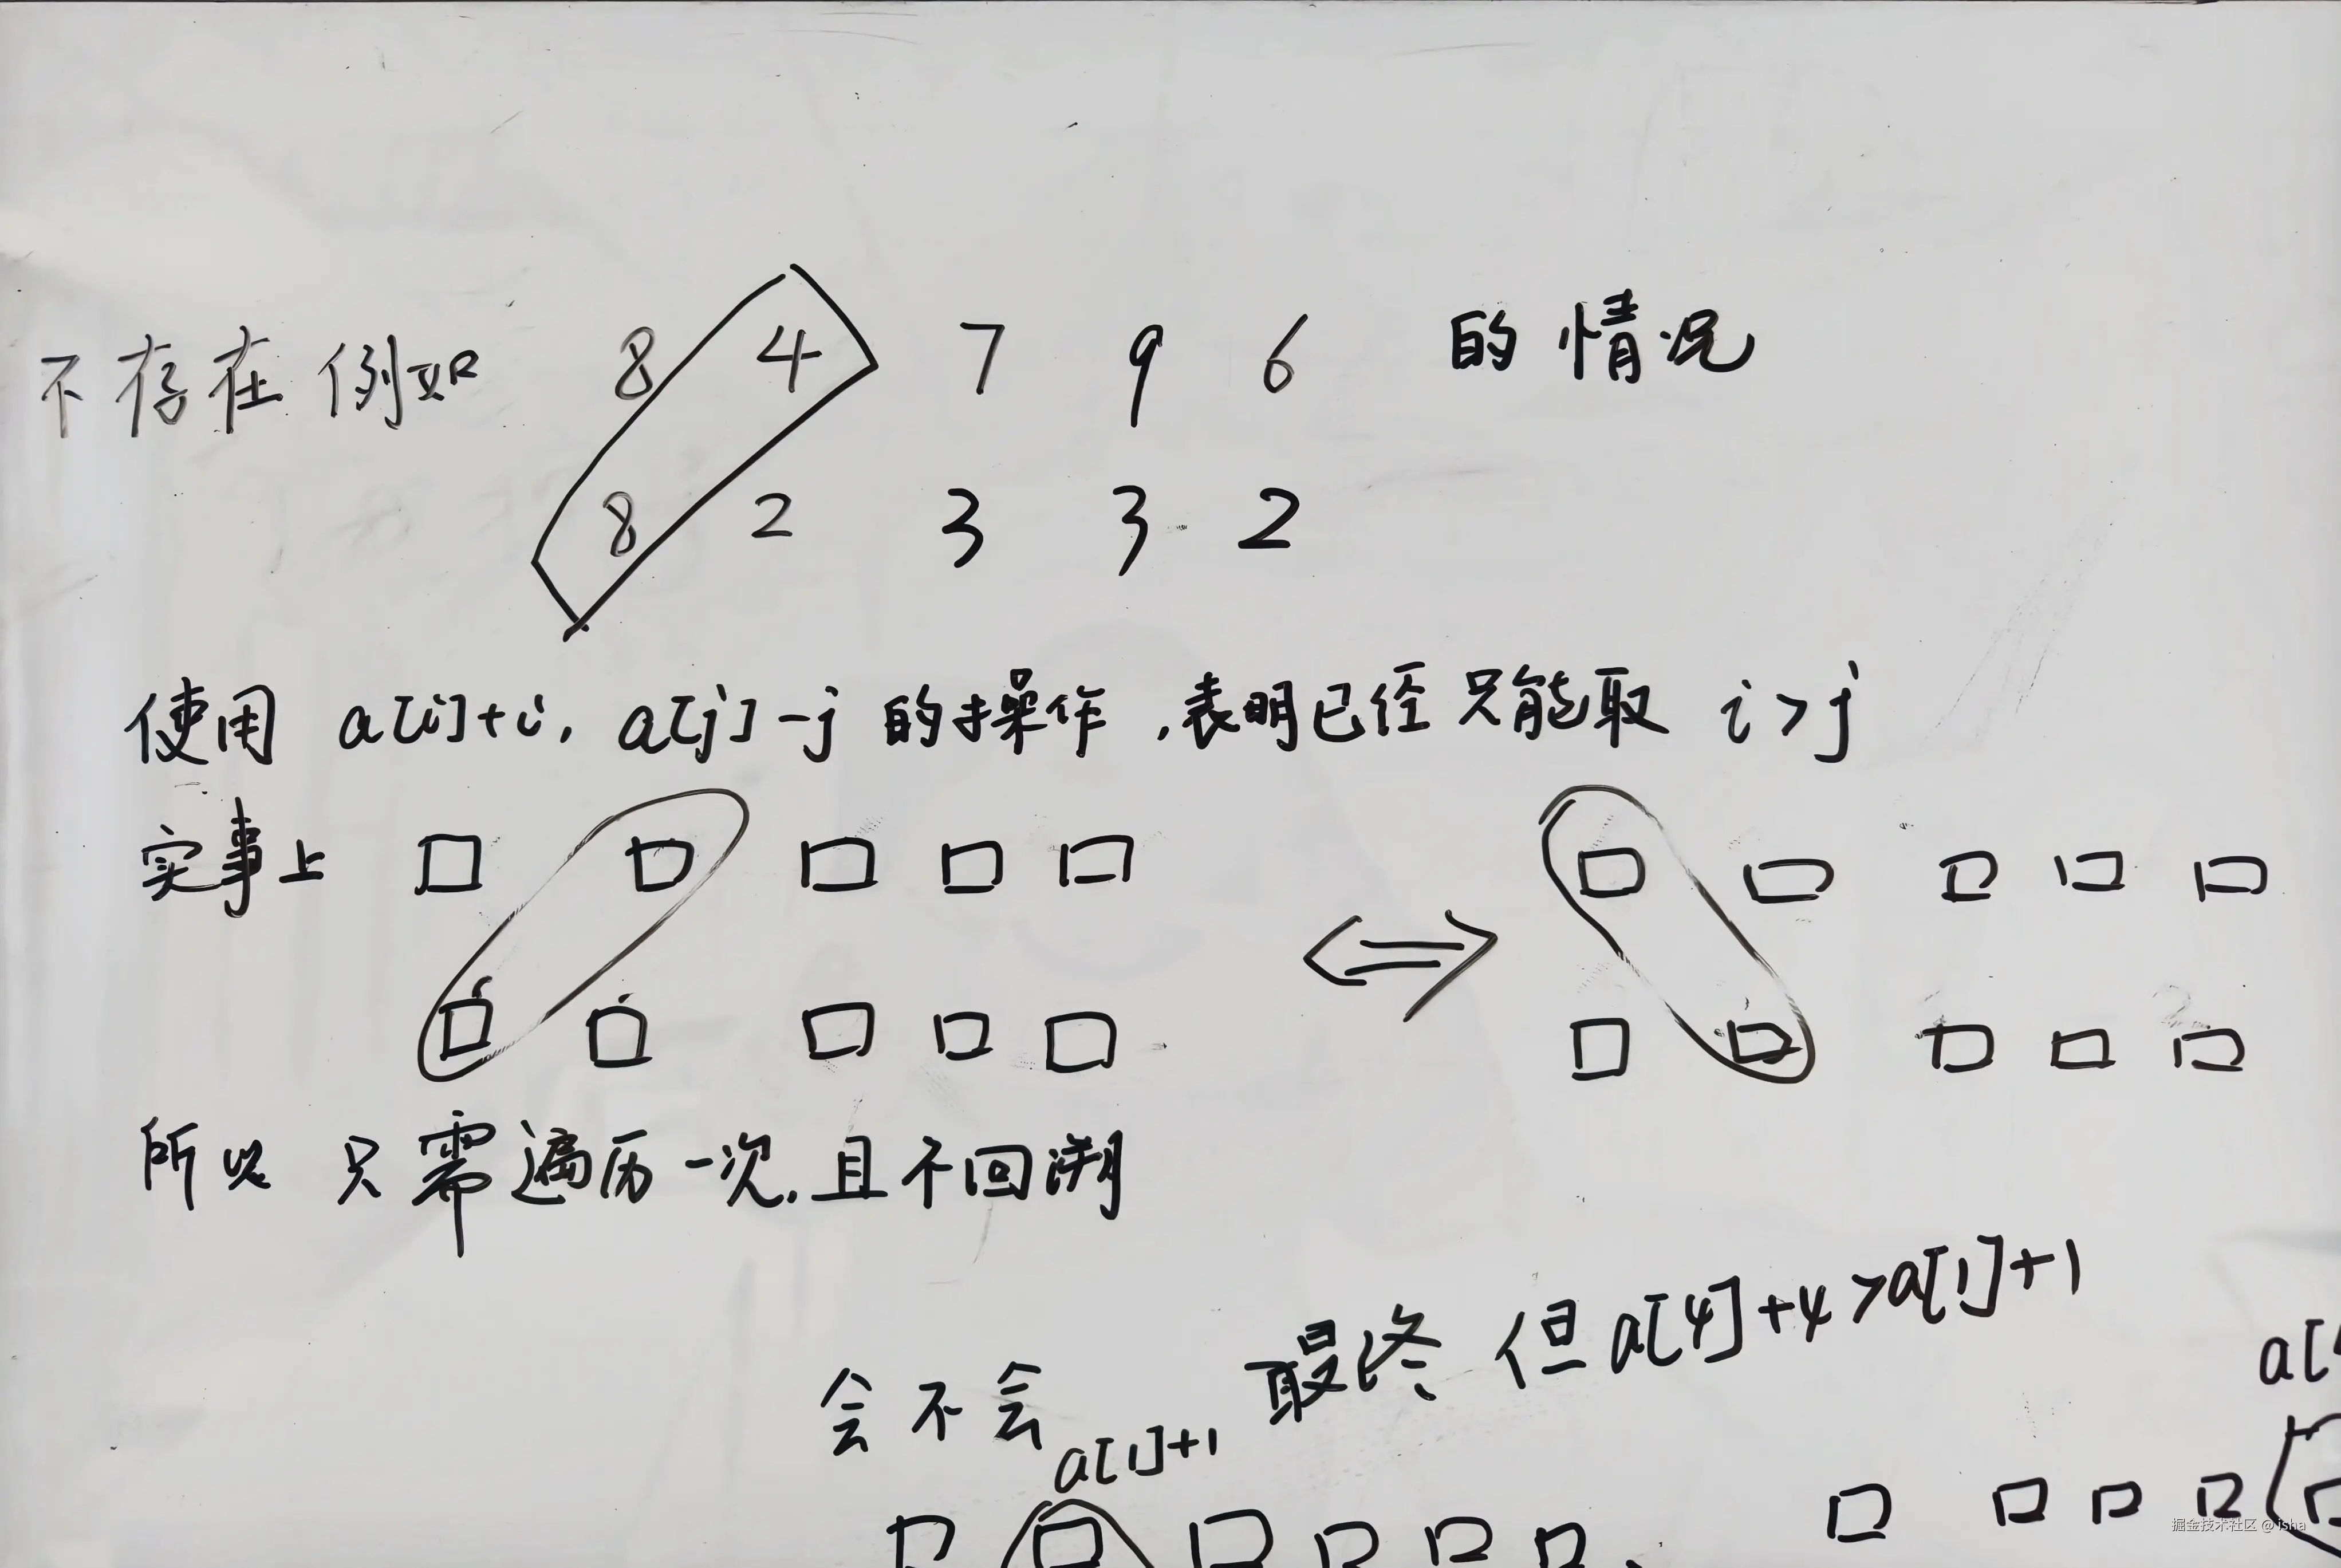 不存在 例如 8 4 7 9 6 的情况
8 2 3 3 2
使用 a[i]+i, a[j]-j 的操作,表明已经只能取 i>j
实事上
所以 只需遍历一次,且不回溯
会不会 最终 但 a[4]+4>a[1]+1
a[1]+1
掘金技术社区 @ isha